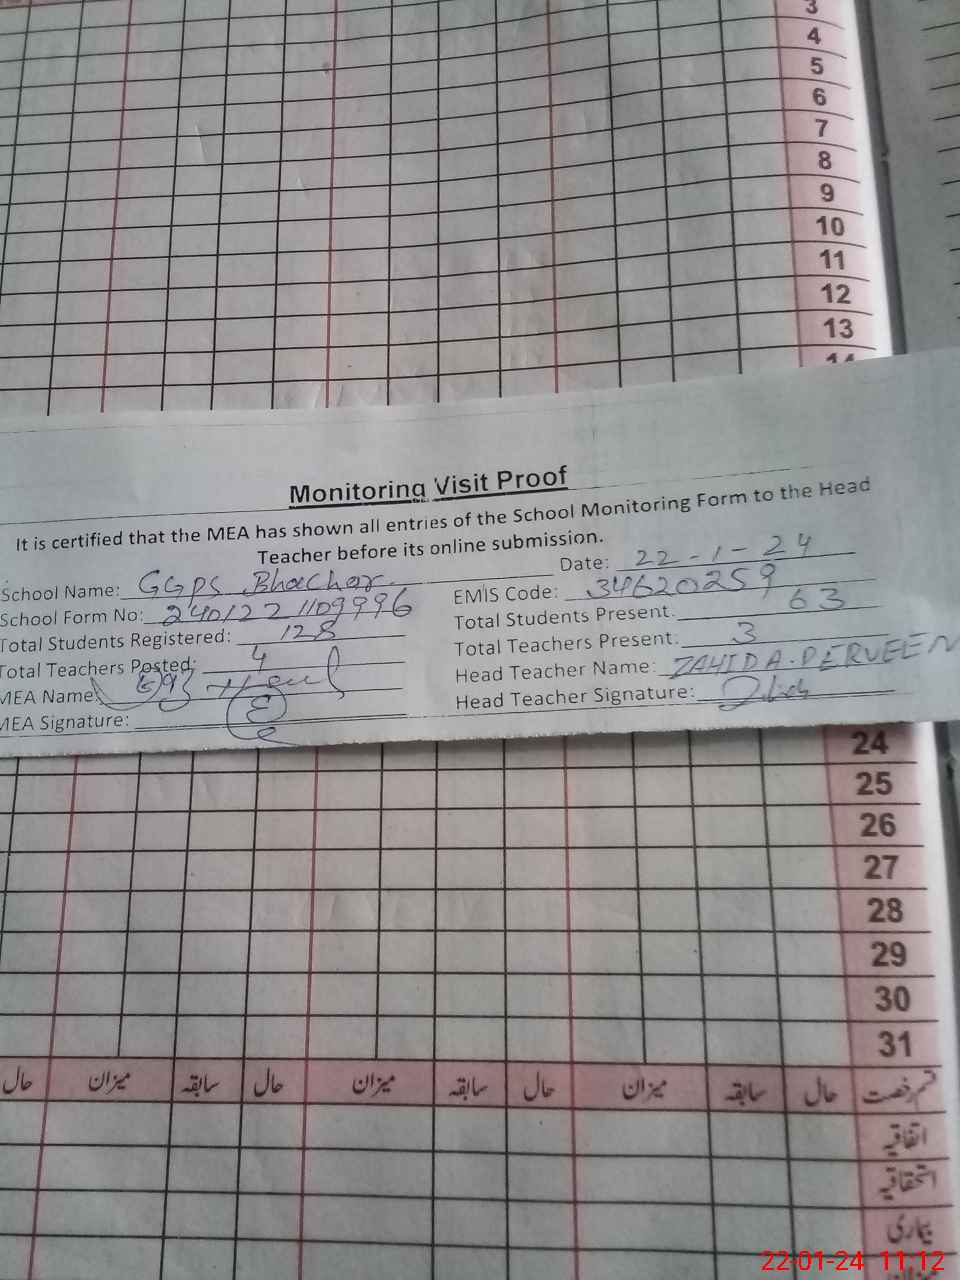 3
4
5
6
7
8
9
10
11
12
13
14
Monitoring Visit Proof
It is certified that the MEA has shown all entries of the School Monitoring Form to the Head
Teacher before its online submission.
Date: 22-1-24
School Name: GGPS Bhachar
EMIS Code: 34620259
School Form No: 2401221109996
Total Students Present: 63
Total Students Registered: 128
Total Teachers Present: 3
Total Teachers Posted: 4
Head Teacher Name: ZAHIDA PERVEEN
MEA Name:
Head Teacher Signature:
MEA Signature:
24
25
26
27
28
29
30
31
قسم رخصت حال سابقہ میزان حال سابقہ میزان حال سابقہ میزان حال
اتفاقیہ
استحقاقیہ
بیماری
میزان
22-01-24 11:12